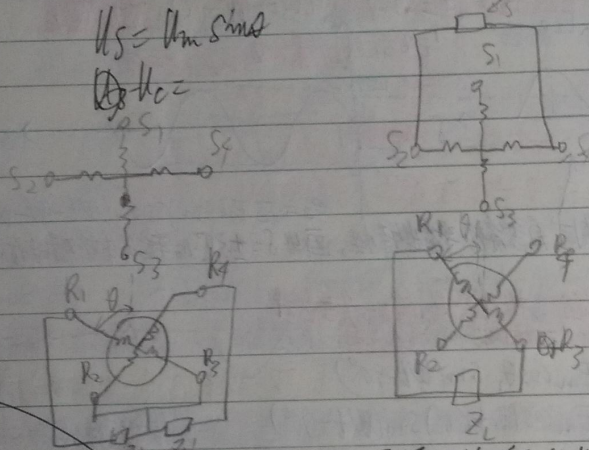 U_S = U_m sinθ
U_C =
S1
S4
S2
S3
R1
θ
R4
R2
R3
S1
S2
S3
R1
θ
R4
R2
R3
Z_L